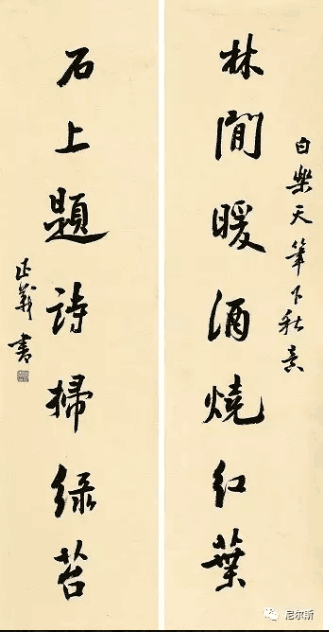 白樂天筆下秋意
林閒暖酒燒紅葉
石上題詩掃緑苔
正義書
尼尔斯